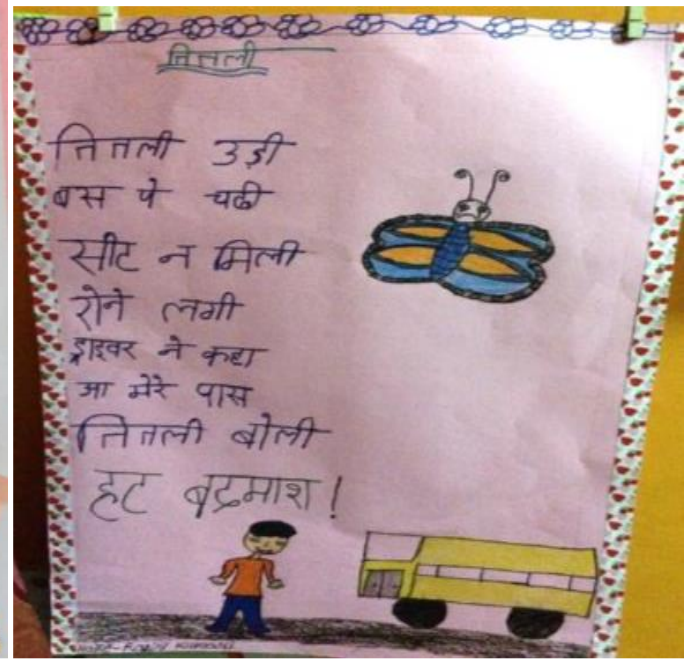 तितली
तितली उड़ी
बस पे चढी
सीट न मिली
रोने लगी
ड्राइवर ने कहा
आ मेरे पास
तितली बोली
हट बदमाश!